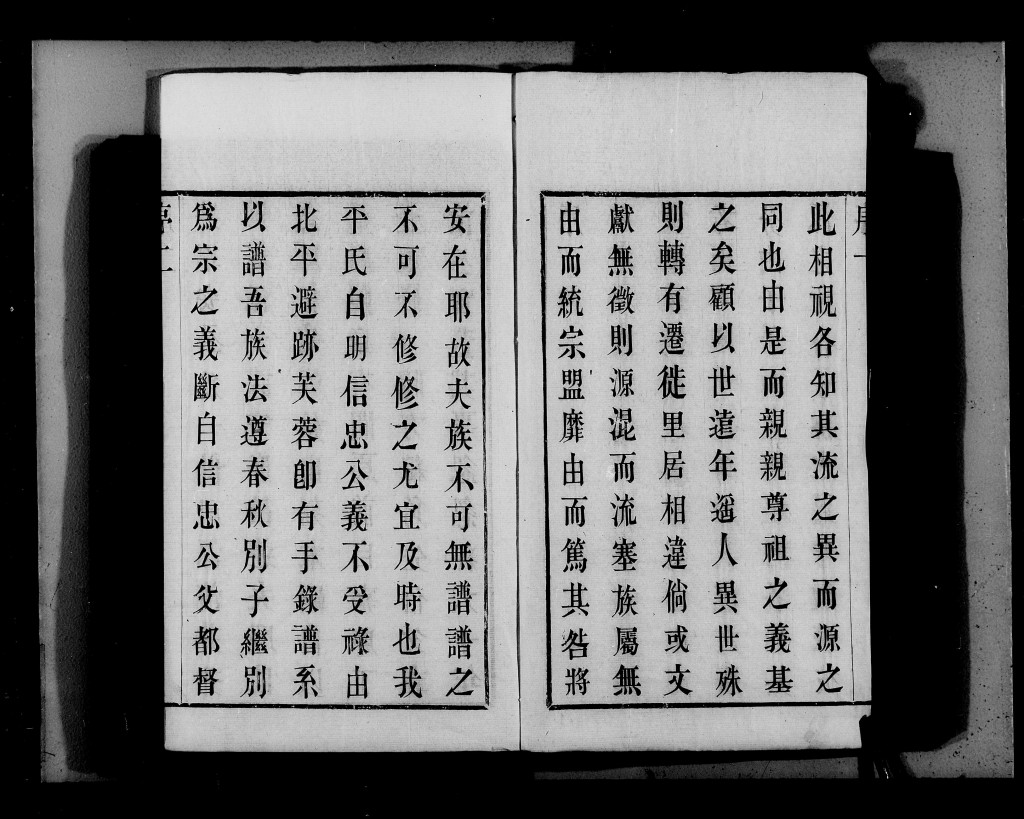 序一
此相視各知其流之異而源之
同也由是而親親尊祖之義基
之矣顧以世遠年遙人異世殊
則轉有遷徙里居相違倘或文
獻無徵則源混而流塞族屬無
由而統宗盟靡由而篤其咎將
安在耶故夫族不可無譜譜之
不可不修修之尤宜及時也我
平氏自明信忠公義不受祿由
北平避跡芙蓉卽有手錄譜系
以譜吾族法遵春秋別子繼別
爲宗之義斷自信忠公父都督
序二